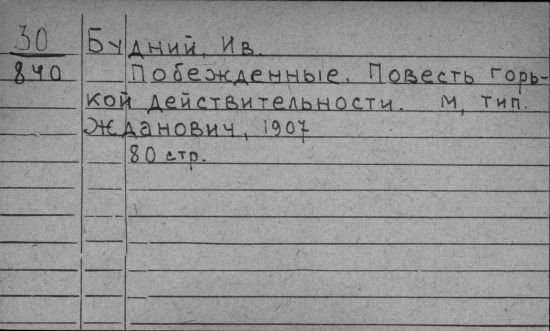 30 Будний, Ив.
840 Побежденные. Повесть горь-
кой действительности. М, тип.
Жданович, 1907
80 стр.